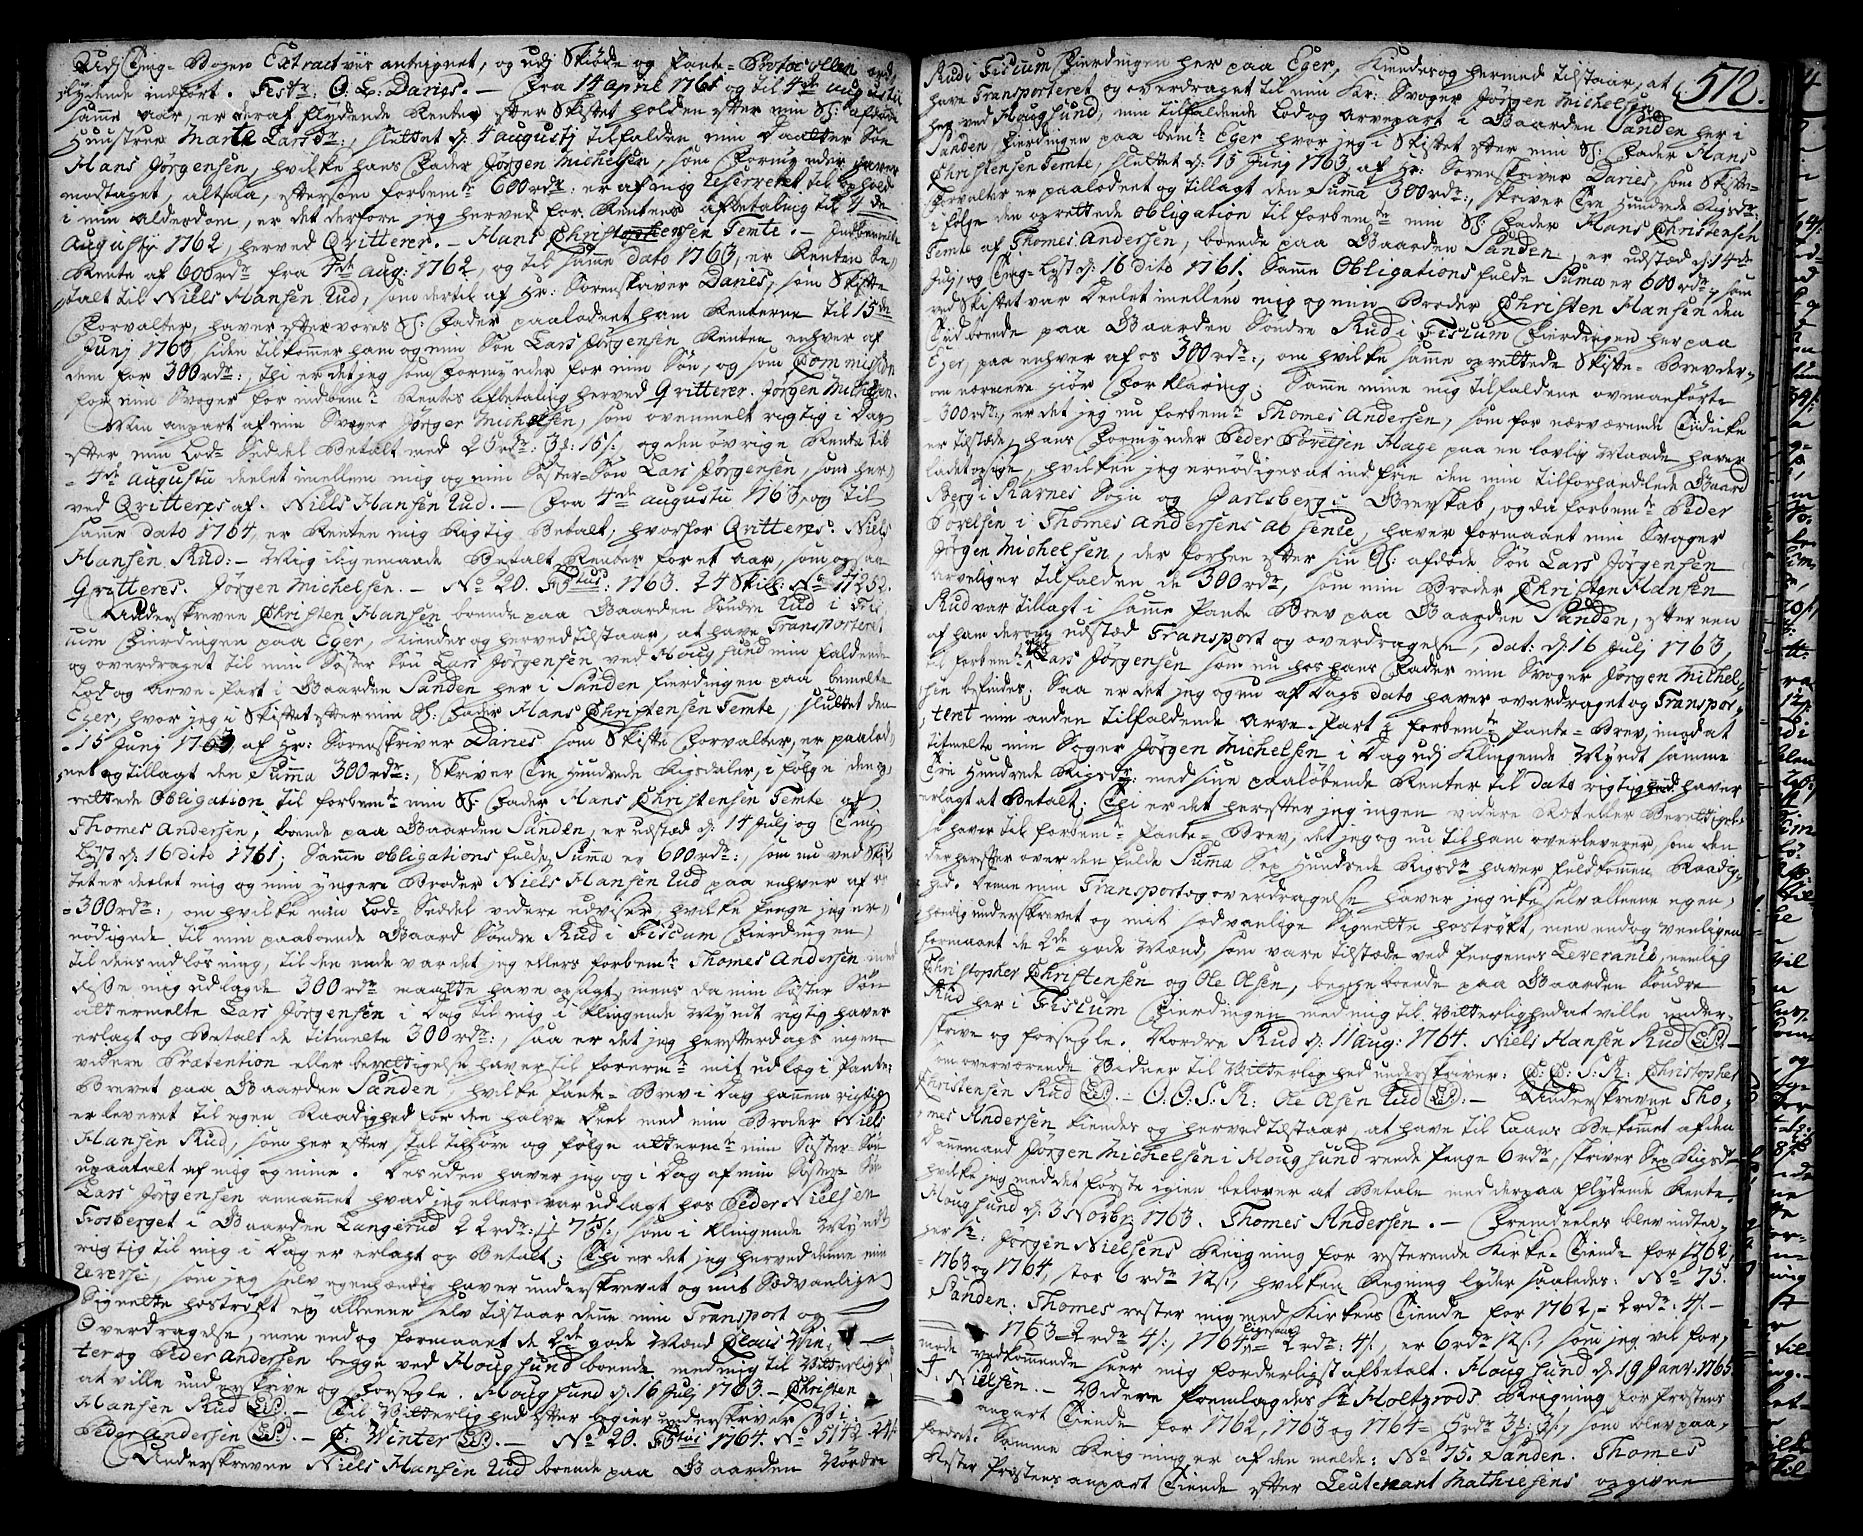 Udj Ting-Bogens Extract vis anteignet, og udj Skiøde og Pante-Protocollen ord,
lydende indført. Test: O. L. Daries. — Fra 14 april 1761 og til 4de augusti
samme aar, er deraf flydende Renter efter Skiftet holden efter min Sl: afdøde
Huustrue Marte Larsdr:, sluttet d: 4 augustj tilfalden min Daatter Søn
Hans Jörgensen, hvilke hans Fader Jörgen Michelsen, som Formynder haver
modtaget, altsaa, eftersom forbemte 600 rdr: er af mig Reserveret til ophold
i min alderdom, er det derfore jeg herved for Rentens afbetaling til 4de
Augusty 1762, herved Qvitterer. — Hans Christensen Temte. — Indbemelte
Rente af 600 rdr fra 4de aug: 1762, og til samme dato 1763, er Renten be-
talt til Niels Hansen Rud, som dertil af Hr: Sorenskriver Daries, som Skifte
Forvalter, haver efter vores Sl: Fader paalodnet ham Renterne til 15de
Junj 1763, siden tilkommer ham og min Søn Lars Jörgensen Renten enhver af
dem for 300 rdr:, thi er det jeg som Formynder for min Søn, og som Commission
for min Svoger for indbemte Rentes afbetaling herved Qvitterer. Jörgen Michelsen.
Min anpart af min Svoger Jörgen Michelsen, som ovenmelt rigtig i Dag
efter min Lod-Seddel Betalt med 20 rdr: 3 : 15 /. og den øvrige Rente til
4de Augustu deelet imellem mig og min Søster-Søn Lars Jörgensen, som her-
ved Qvitteres af. Niels Hansen Rud. — Fra 4de augustu 1763, og til
samme dato 1764, er Renten mig Rigtig Betalt, hvorfor Qvitteres. Niels
Hansen Rud: — Mig iligemaade Betalt Renter for et aar, som ogsaa
Qvitteres. Jörgen Michelsen. — No 20. 1763. 24 Skill: No 11252.
Underskrevne Christen Hansen boende paa Gaarden Søndre Rud i Fis
cum Fierdingen paa Eger, kiendes og herved tilstaar, at have Transporteret
og overdraget til min Søster Søn Lars Jörgensen ved Hougsund min faldende
Lod og Arve-Part i Gaarden Sanden her i Sanden fierdingen paa bemelte
Eger, hvor jeg i Skiftet efter min Sl: Fader Hans Christensen Temte, sluttet den
15 Junj 1763, af Hr: Sorenskriver Daries som Skifte Forvalter, er paalod-
net og tillagt den Summa 300 rdr:, skriver Tre Hundrede Rigsdaler, i følge den op-
rettede Obligation til forbemte min Sl: Fader Hans Christensen Temte af
Thomes Andersen, boende paa Gaarden Sanden, er udstæd d: 14 Julj og Ting
Lyst d: 16 dito 1761; Samme obligations fulde Summa er 600 rdr:, som nu ved Skif-
tet er deelet mig og min yngere Broder Niels Hansen Rud paa enhver af os
300 rdr:, om hvilke min Lod-Seddel videre udviser, hvilke Penge jeg er-
nödigede til min paaboende Gaard Søndre Rud i Fiscum Fierdingen
til dens indløsning, til den ende var det jeg ellers forbemte Thomes Andersen med
disse mig udlagde 300 rdr maatte have opsagt, mens da min Søster Søn
altermelte Lars Jörgensen i Dag til mig i klingende Mynt rigtig haver
erlagt og Betalt de titmelte 300 rdr:, saa er det jeg herefterdags ingen
videre Prætention eller berettigelse haver til forermte mit udlæg i Pante-
Brevet paa Gaarden Sanden, hvilke Pante-Brev i Dag hannem rigtig
er leveret til egen Raadighed for den halve Deel med min Broder Niels
Hansen Rud, som her efter skal tilhøre og følge alternte min Søster Søn
upaatalt af mig og mine. Desuden haver jeg og i Dag af min Søster Søn
Lars Jörgensen annammet hvad jeg ellers var udlagt hos Peder Nielsen
Frosberget i Gaarden Langerud 22 rdr: som i klingende Myndt
rigtig til mig i Dag er erlagt og Betalt; Thi er det jeg herved denne min
Reverse, som jeg selv egenhændig haver underskrevet og mit Sædvanlige
Signette hostrÿkt ej alleene selv tilstaar denne min Transport og
Overdragelse, men endog formaaet de 2de gode Mænd Claus Win-
ter og Peder Andersen begge ved Hougsund boende med mig til Vitterlighed
at ville underskrive og Forsegle. Hougsund d: 16 Julj 1763. — Christen
Hansen Rud (L.S.). — Til Vitterlighed efter begier underskriver
Peder Andersen (L.S.). — C: Winter (L.S.). — No 20. 1764. No 5172. 24/.
Underskrevne Niels Hansen Rud boende paa Gaarden Nordre
572.
Rud i Fiscum Fierdingen her paa Eger, Kiendes og hermed tilstaar, at
have Transporteret og overdraget til min Kr: Svoger Jörgen Michelsen
her ved Hougsund, min tilfaldende Lod og Arvepart i Gaarden Sanden her i
Sanden Fierdingen paa bemte Eger hvor jeg i Skiftet efter min Sl: Fader Hans
Christensen Temte, sluttet d: 15 Junj 1763 af Hr: Sorenskriver Daries, som Skifte-
Forvalter er paalodnet og tillagt den Suma 300 rdr:, skriver Tre Hundrede Rigsdr:
i følge den oprettede Obligation til forbemte min Sl: Fader Hans Christensen
Temte af Thomes Andersen, boende paa Gaarden Sanden, er udstæd d: 14de
Julj, og Ting-Lyst d: 16 dito 1761; Samme Obligations fulde Suma er 600 rdr, som
ved Skiftet var Deelet imellem mig og min Broder Christen Hansen den
Tid boende paa Gaarden Søndre Rud i Fiscum Fierdingen her paa
Eger, paa enhver af os 300 rdr:, om hvilke samme oprettede Skifte-Brev der-
om nærmere giør Forklaring; Samme mine mig tilfaldene ovenanførte
300 rdr: er det jeg nu forbemte Thomes Andersen, som for nærværende Tid icke
er tilstæde, hans Formynder Peder Pörelsen Hage paa en lovlig Maade haver
ladet opsige, hvilken jeg ernødiges at indfrie den min tilforhandlede Gaard
Berg i Ramnes Sogn og Jarlsberg Grevskab, og da forbemte Peder
Pörelsen i Thomes Andersens absence, haver formaaet min Svoger
Jörgen Michelsen, der forhen efter sin Sl: afdöde Søn Lars Jörgensen
arveliger tilfalden de 300 rdr, som min Broder Christen Hansen
Rud var tillagt i samme Pante Brev paa Gaarden Sanden, efter een
af ham derom udstæd Transport og overdragelse, dat: d: 16 Julj 1763,
til forbemte Lars Jörgensen som nu hos hans Fader min Svoger Jörgen Michel-
sen befindes; Saa er det jeg og nu af Dags dato haver overdraget og Transpor-
teret min anden tilfaldende Arve-Part i forbemte Pante-Brev, imod at
titmelte min Svoger Jörgen Michelsen i Dag udj Klingende Myndt samme
Tre Hundrede Rigsdr: med sine paaløbende Renter til dato rigtig haver
erlagt at Betalt; Thi er det herefter jeg ingen videre Rot eller Berettigel-
se haver til forbemte Pante-Brev, det jeg og nu til ham overleverer, som den
der herefter over den fulde Suma Sex Hundrede Rigsdr haver fuldkommen Raadig-
hed. Denne min Transport og overdragelse haver jeg icke selv alleene egen-
hændig underskrevet og mit sædvanlige Signette hostrÿkt, men endog venligen
formaaet de 2de gode Mænd, som vare tilstæde ved Pengenes Leverance, nemlig
Christopher Christensen og Ole Olsen, begge boende paa Gaarden Søndre
Rud her i Fiscum Fierdingen med mig til Vitterlighed at ville under-
skrive og forsegle. Nordre Rud d: 11 aug: 1764. Niels Hansen Rud (L.S.) —
som overværende Vidner til Vitterlighed underskriver: C: C: S: R: Christopher
Christensen Rud (L.S.). — O: O: S: R: Ole Olsen Rud (L.S.). — Underskrevne Tho-
mes Andersen kiendes og herved tilstaar, at have til Laans bekommet af den
Dannemand Jörgen Michelsen i Hougsund reede Penge 6 rdr, skriver Sex Rigsdr
hvilke jeg med det første igien belover at Betale med derpaa flydende Rente.
Hougsund d: 3 Novbr: 1763. Thomes Andersen. — Fremdeeles blev indta-
Jörgen Nielsens Reigning for resterende Kirke-Tiende for 1762,
1763 og 1764, stor 6 rdr 12 /, hvilken Regning lyder saaledes: No 75.
Sanden: Thomes rester mig med Kirkens Tiende for 1762, = 2 rdr: 4/. —
1763 = 2 rdr 4/., 1764 = 2 rdr: 4/., er 6 rdr 12 /, som jeg vil for-
mode vedkommende seer mig forderligst afbetalt. Hougsund d: 19 Janv. 1765
J. Nielsen. — Videre fremlagdes Hr Holtzrods Reigning for Prestens
anpart Tiende for 1762, 1763 og 1764 = 5 rdr som blev paa-
fordret. Samme Reigning er af den melde: No 75. Sanden. Thomes
Rester Prestens anpart Tiende efter Leutenant Mathiesens opgivne